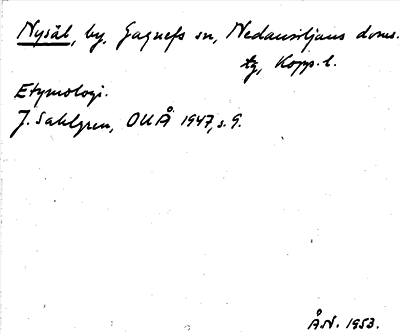 Nysäl, by, Gagnefs sn, Nedansiljans doms.
tg, Kopp. l.
Etymologi.
J. Sahlgren, OUÅ 1947, s. 9.
ÅN. 1953.